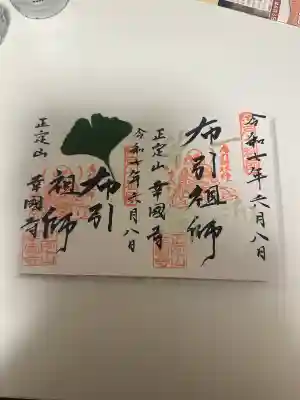 令和七年六月八日
布引祖師
正定山 幸國寺
令和七年六月八日
布引
祖師
正定山 幸國寺